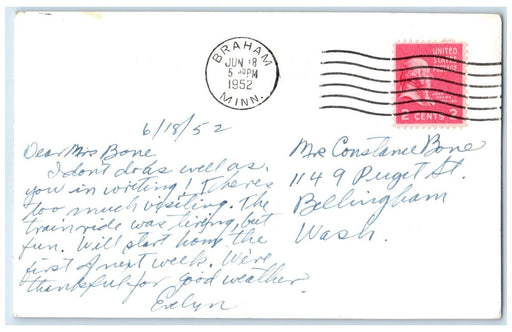 BRAHAM
JUN 18
5 PM
1952
MINN.
UNITED
STATES
POSTAGE
2 CENTS 2
6/18/52
Dear Mrs Bone
I don't do as well as
you in writing! There's
too much visiting. The
train ride was tiring, but
fun. Will start home the
first of next week. We're
thankful for good weather
Evelyn
Mrs Constance Bone
1149 Puget St.
Bellingham
Wash.